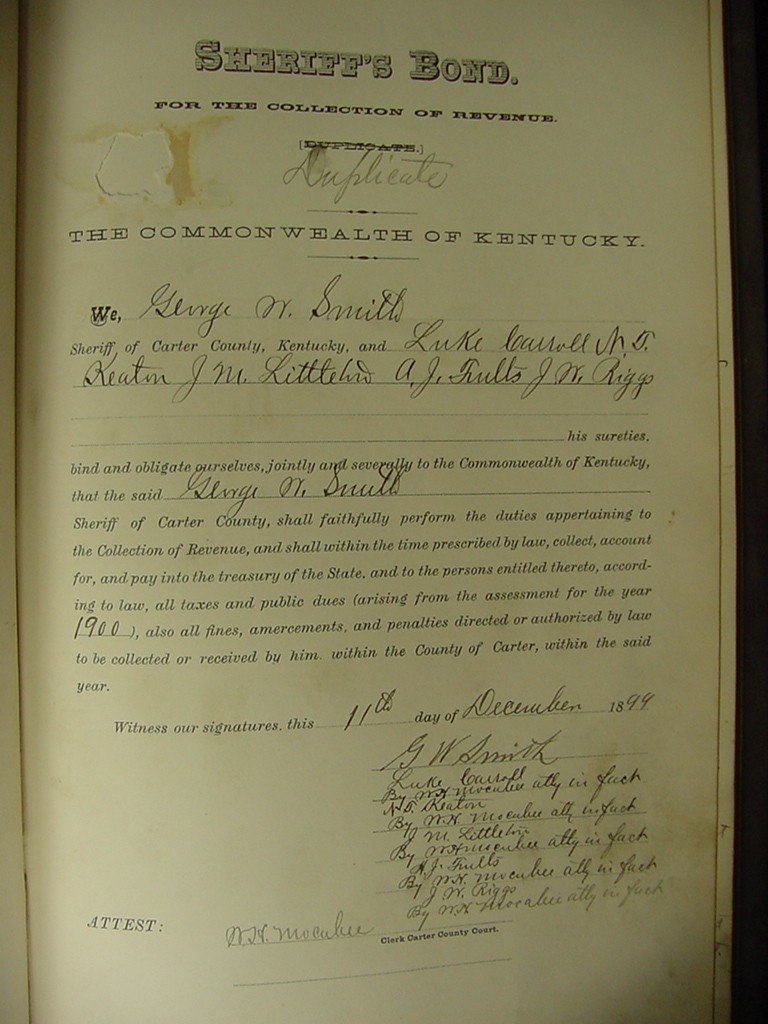 SHERIFF'S BOND.
FOR THE COLLECTION OF REVENUE.
[DUPLICATE.]
Duplicate
THE COMMONWEALTH OF KENTUCKY.
We, George W. Smith
Sheriff of Carter County, Kentucky, and Luke Carroll N. T.
Keaton J. M. Littleton A. J. Fults J. W. Riggs
his sureties,
bind and obligate ourselves, jointly and severally to the Commonwealth of Kentucky,
that the said George W. Smith
Sheriff of Carter County, shall faithfully perform the duties appertaining to
the Collection of Revenue, and shall within the time prescribed by law, collect, account
for, and pay into the treasury of the State. and to the persons entitled thereto, accord-
ing to law, all taxes and public dues (arising from the assessment for the year
1900), also all fines, amercements, and penalties directed or authorized by law
to be collected or received by him. within the County of Carter, within the said
year.
Witness our signatures, this 11th day of December 1899
G W Smith
Luke Carroll
By W.H. Mocabee atty in fact
N. T. Keaton
By W.H. Mocabee atty in fact
J M. Littleton
By W H Mocabee atty in fact
A. J. Fults
By W.H. Mocabee atty in fact
J W. Riggs
By W H Mocabee atty in fact
ATTEST: W. H. Mocabee
Clerk Carter County Court.